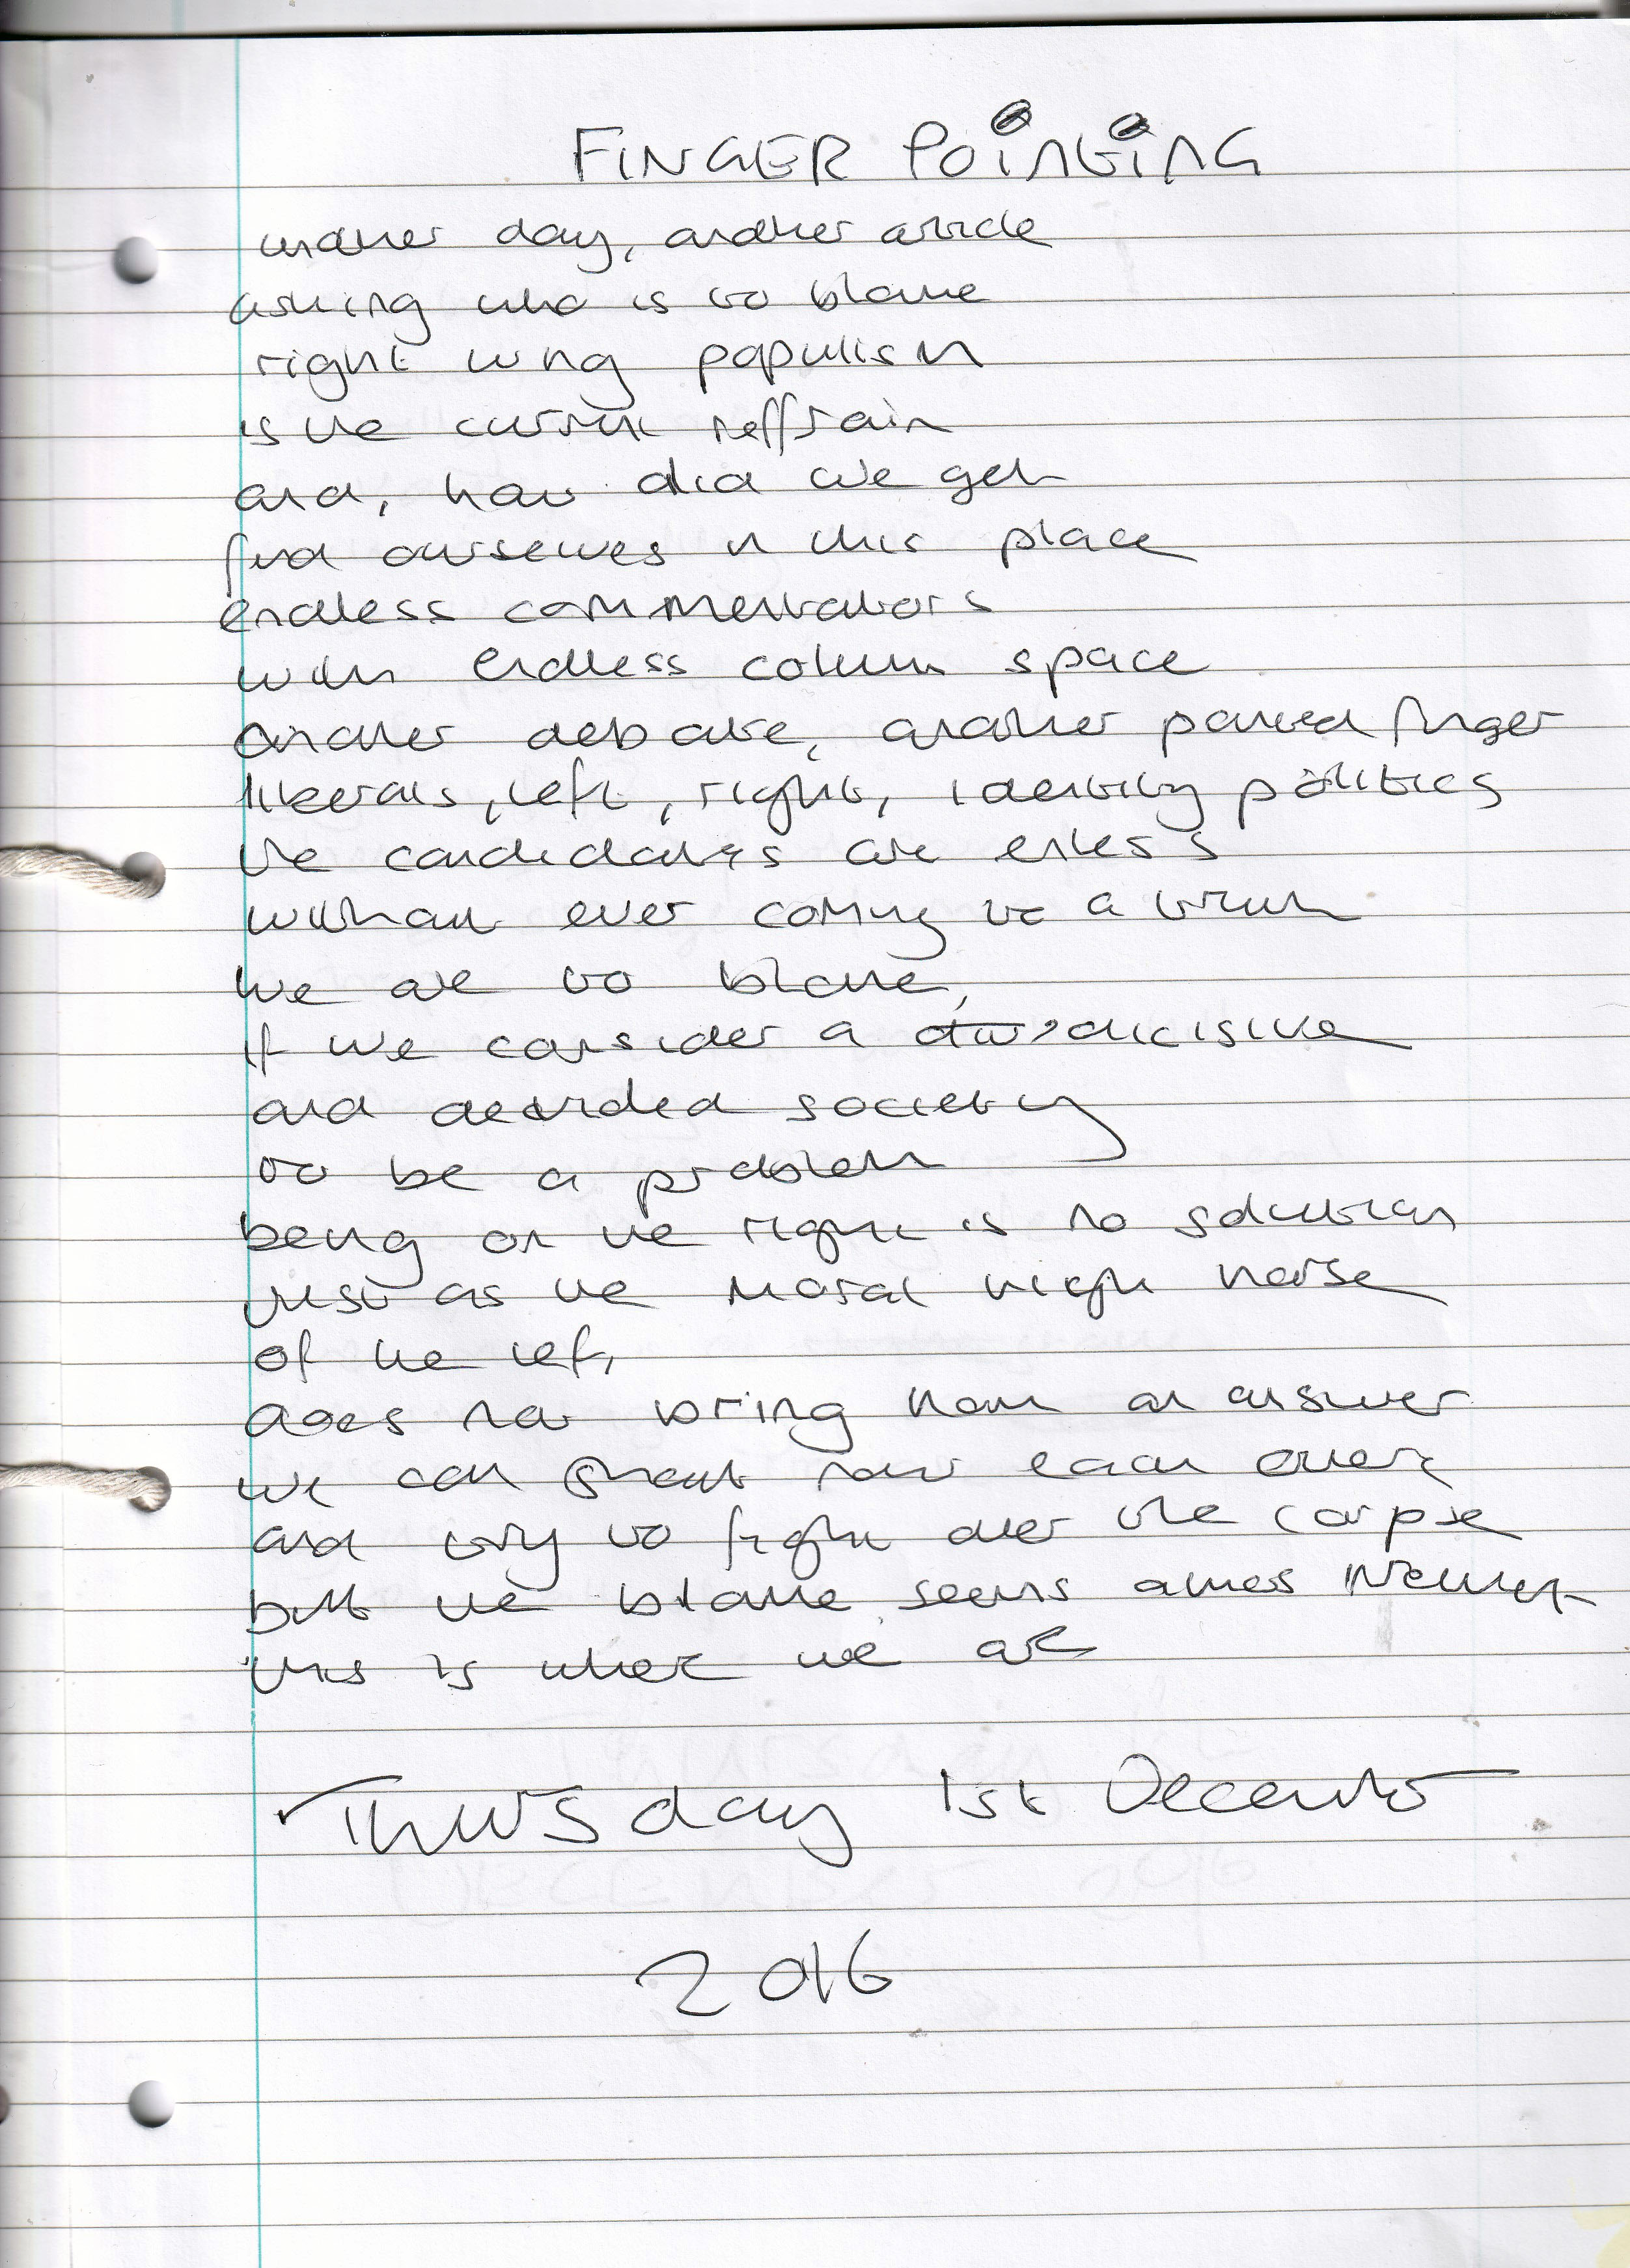 FINGER POINtING
another day, another article
asking who is to blame
right wing populism
is the current reffrain
and, how did we get
find ourselves in this place
endless commentators
with endless column space
another debate, another pointed finger
liberals, left, right, identity politics
the candidates are endless
without ever coming to a truth
we are to blame,
if we consider a divisive
and divided society
to be a problem
being on the right is no solution
just as the moral high horse
of the left,
does not bring home an answer
we can shout at each other
and try to fight over the corpse
but the blame seems almost
this is where we are
Thursday 1st December
2016